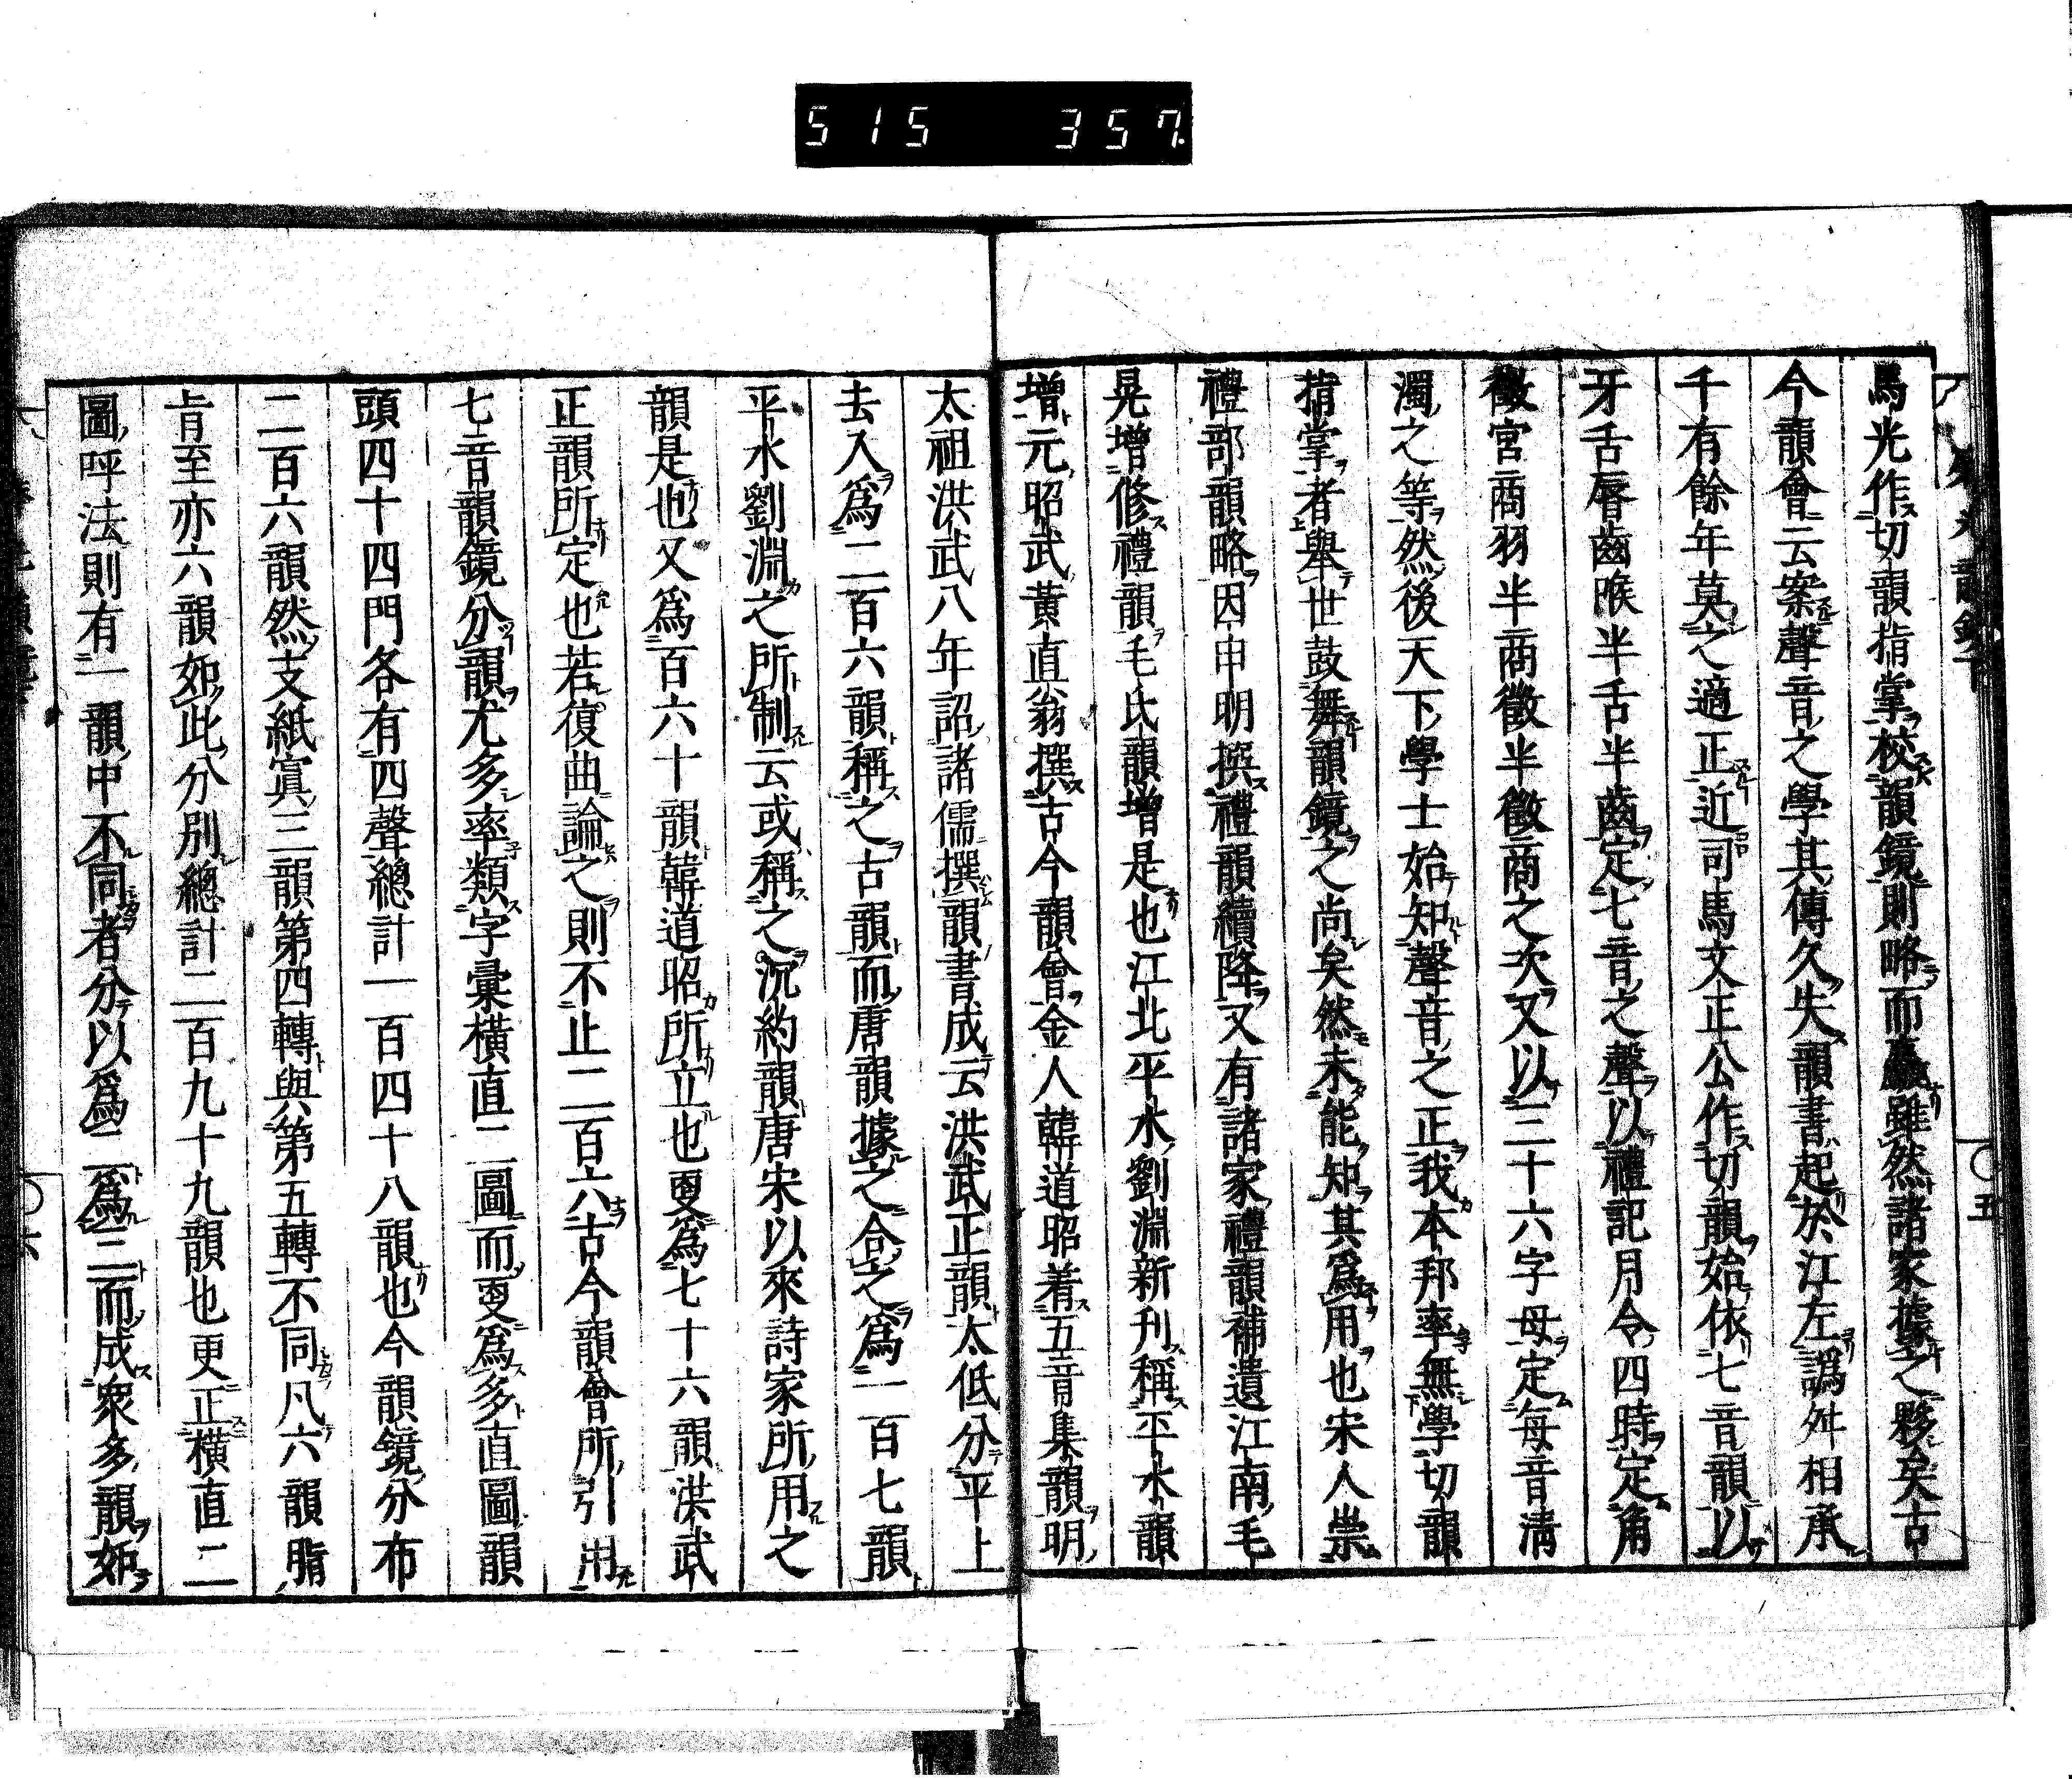 515 357
馬光作切韻指掌校韻鏡則略而麤雖然諸家據之夥矣古
今韻會云案聲音之學其傳久失韻書起於江左譌舛相承
千有餘年莫之適正近司馬文正公作切韻始依七音韻以
牙舌唇齒喉半舌半齒定七音之聲以禮記月令四時定角
徵宮商羽半商徵半徵商之次又以三十六字母定每音清
濁之等然後天下學士始知聲音之正我本邦率無學切韻
指掌者舉世鼓舞韻鏡之尚矣然未能知其爲用也宋人崇
禮部韻略因申明撰禮韻續降又有諸家禮韻補遺江南毛
晃增修禮韻毛氏韻增是也江北平水劉淵新刋稱平水韻
增元昭武黃直翁撰古今韻會金人韓道昭着五音集韻明
太祖洪武八年詔諸儒撰韻書成云洪武正韻太低分平上
去入爲二百六韻稱之古韻而唐韻據之合之爲一百七韻
平水劉淵之所制云或稱之沉約韻唐宋以來詩家所用之
韻是也又爲百六十韻韓道昭所立也更爲七十六韻洪武
正韻所定也若復曲論之則不止二百六古今韻會所引用
七音韻鏡分韻尤多率類字彙横直二圖而更爲多直圖韻
頭四十四門各有四聲總計一百四十八韻也今韻鏡分布
二百六韻然支紙寘三韻第四轉與第五轉不同凡六韻脂
旨至亦六韻如此分別總計二百九十九韻也更正横直二
圖呼法則有一韻中不同者分以爲二爲三而成衆多韻如
五
六